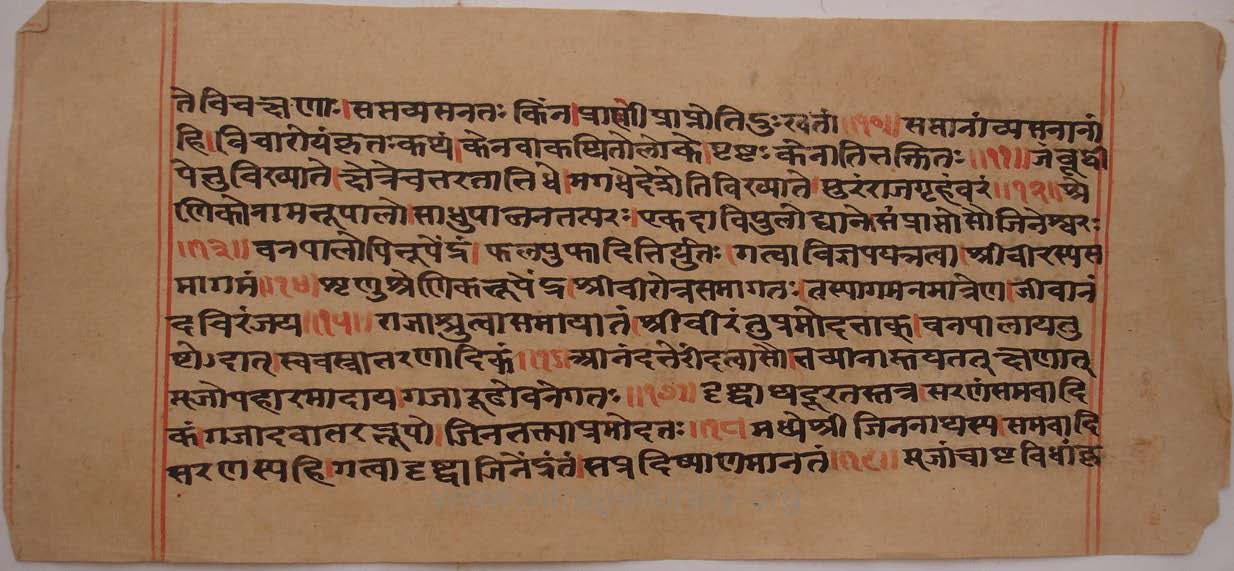 ते विचक्षणाः।सप्तव्यसनतः किंन।प्राणी प्राप्नोति दुःखतां॥१०॥सप्तानां व्यसनानां
हि।विचारोयंकृतःकथं।केनवाकथितोलोके।पृष्टः केनातिभक्तितः॥११॥जंबूद्वी
पेतुविख्याते।क्षेत्रेचभरताभिधे।मगधदेशेतिविख्याते।पुरंराजगृहंवरं॥१२॥श्रे
णिकोनामभूपालो।साधुपालनतत्परः।एकदाविपुलोद्याने।संप्राप्तोसौजिनेश्वरः
॥१३॥वनपालोपिभूपेंद्रं।फलपुष्पादिभिर्युतः।गत्वाविज्ञपयन्नत्वा।श्रीवीरस्यस
मागमं॥१४॥श्रृणुश्रेणिकभूपेंद्र।श्रीवीरोत्रसमागतः।तस्यागमनमात्रेण।जीवानं
दविरंजय॥१५॥राजाश्रुत्वासमायातं।श्रीवीरंतुप्रमोदभाक्।वनपालायतु
ष्टोऽदात्।स्ववस्त्राभरणादिकं॥१६॥आनंदभेरींदत्वासौ।तत्क्षणात्
पूजोपहारमादाय।गजारूढोवनेगतः॥१७॥दृष्ट्वाथदूरतस्तत्र।सरणंसमवादि
कं।गजादवातरद्भूपो।जिनभक्त्याप्रमोदतः॥१८॥मध्येश्रीजिननाथस्य।समवादि
सरणस्यहि।गत्वादृष्ट्वाजिनेंद्रंतं।सत्रदिक्षाणमानतं॥१९॥पूजांचाष्टविधांकृ